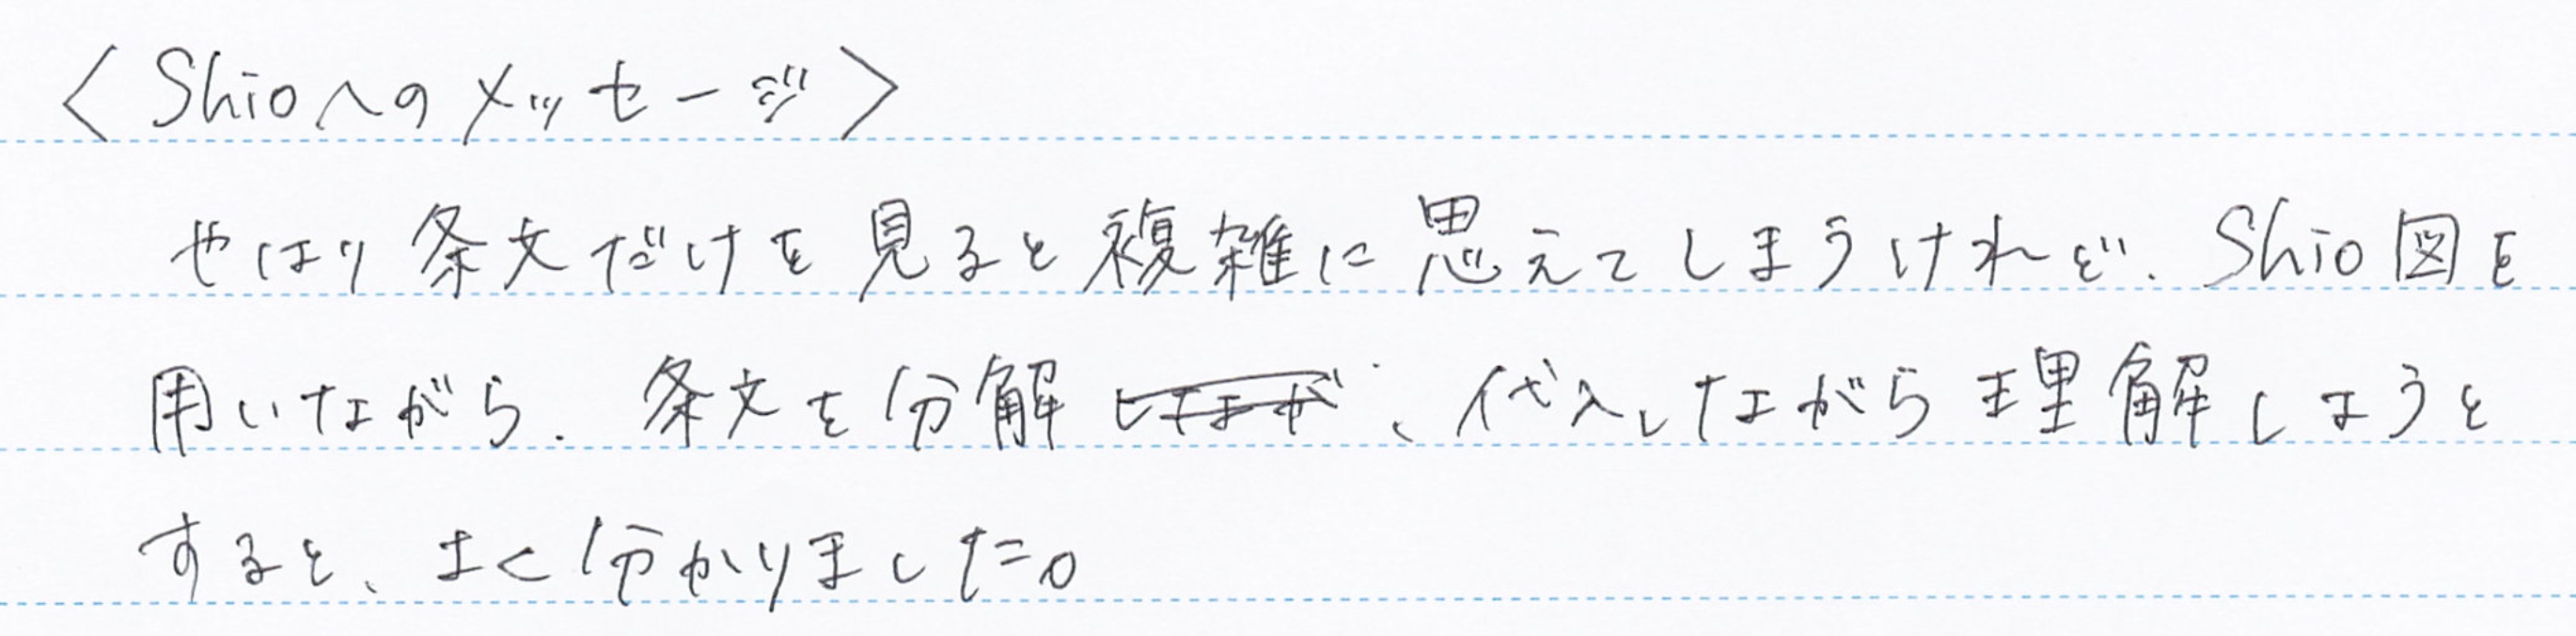 〈Shioへのメッセージ〉
やはり条文だけを見ると複雑に思えてしまうけれど、Shio図を
用いながら、条文を分解、代入しながら理解しようと
すると、よく分かりました。